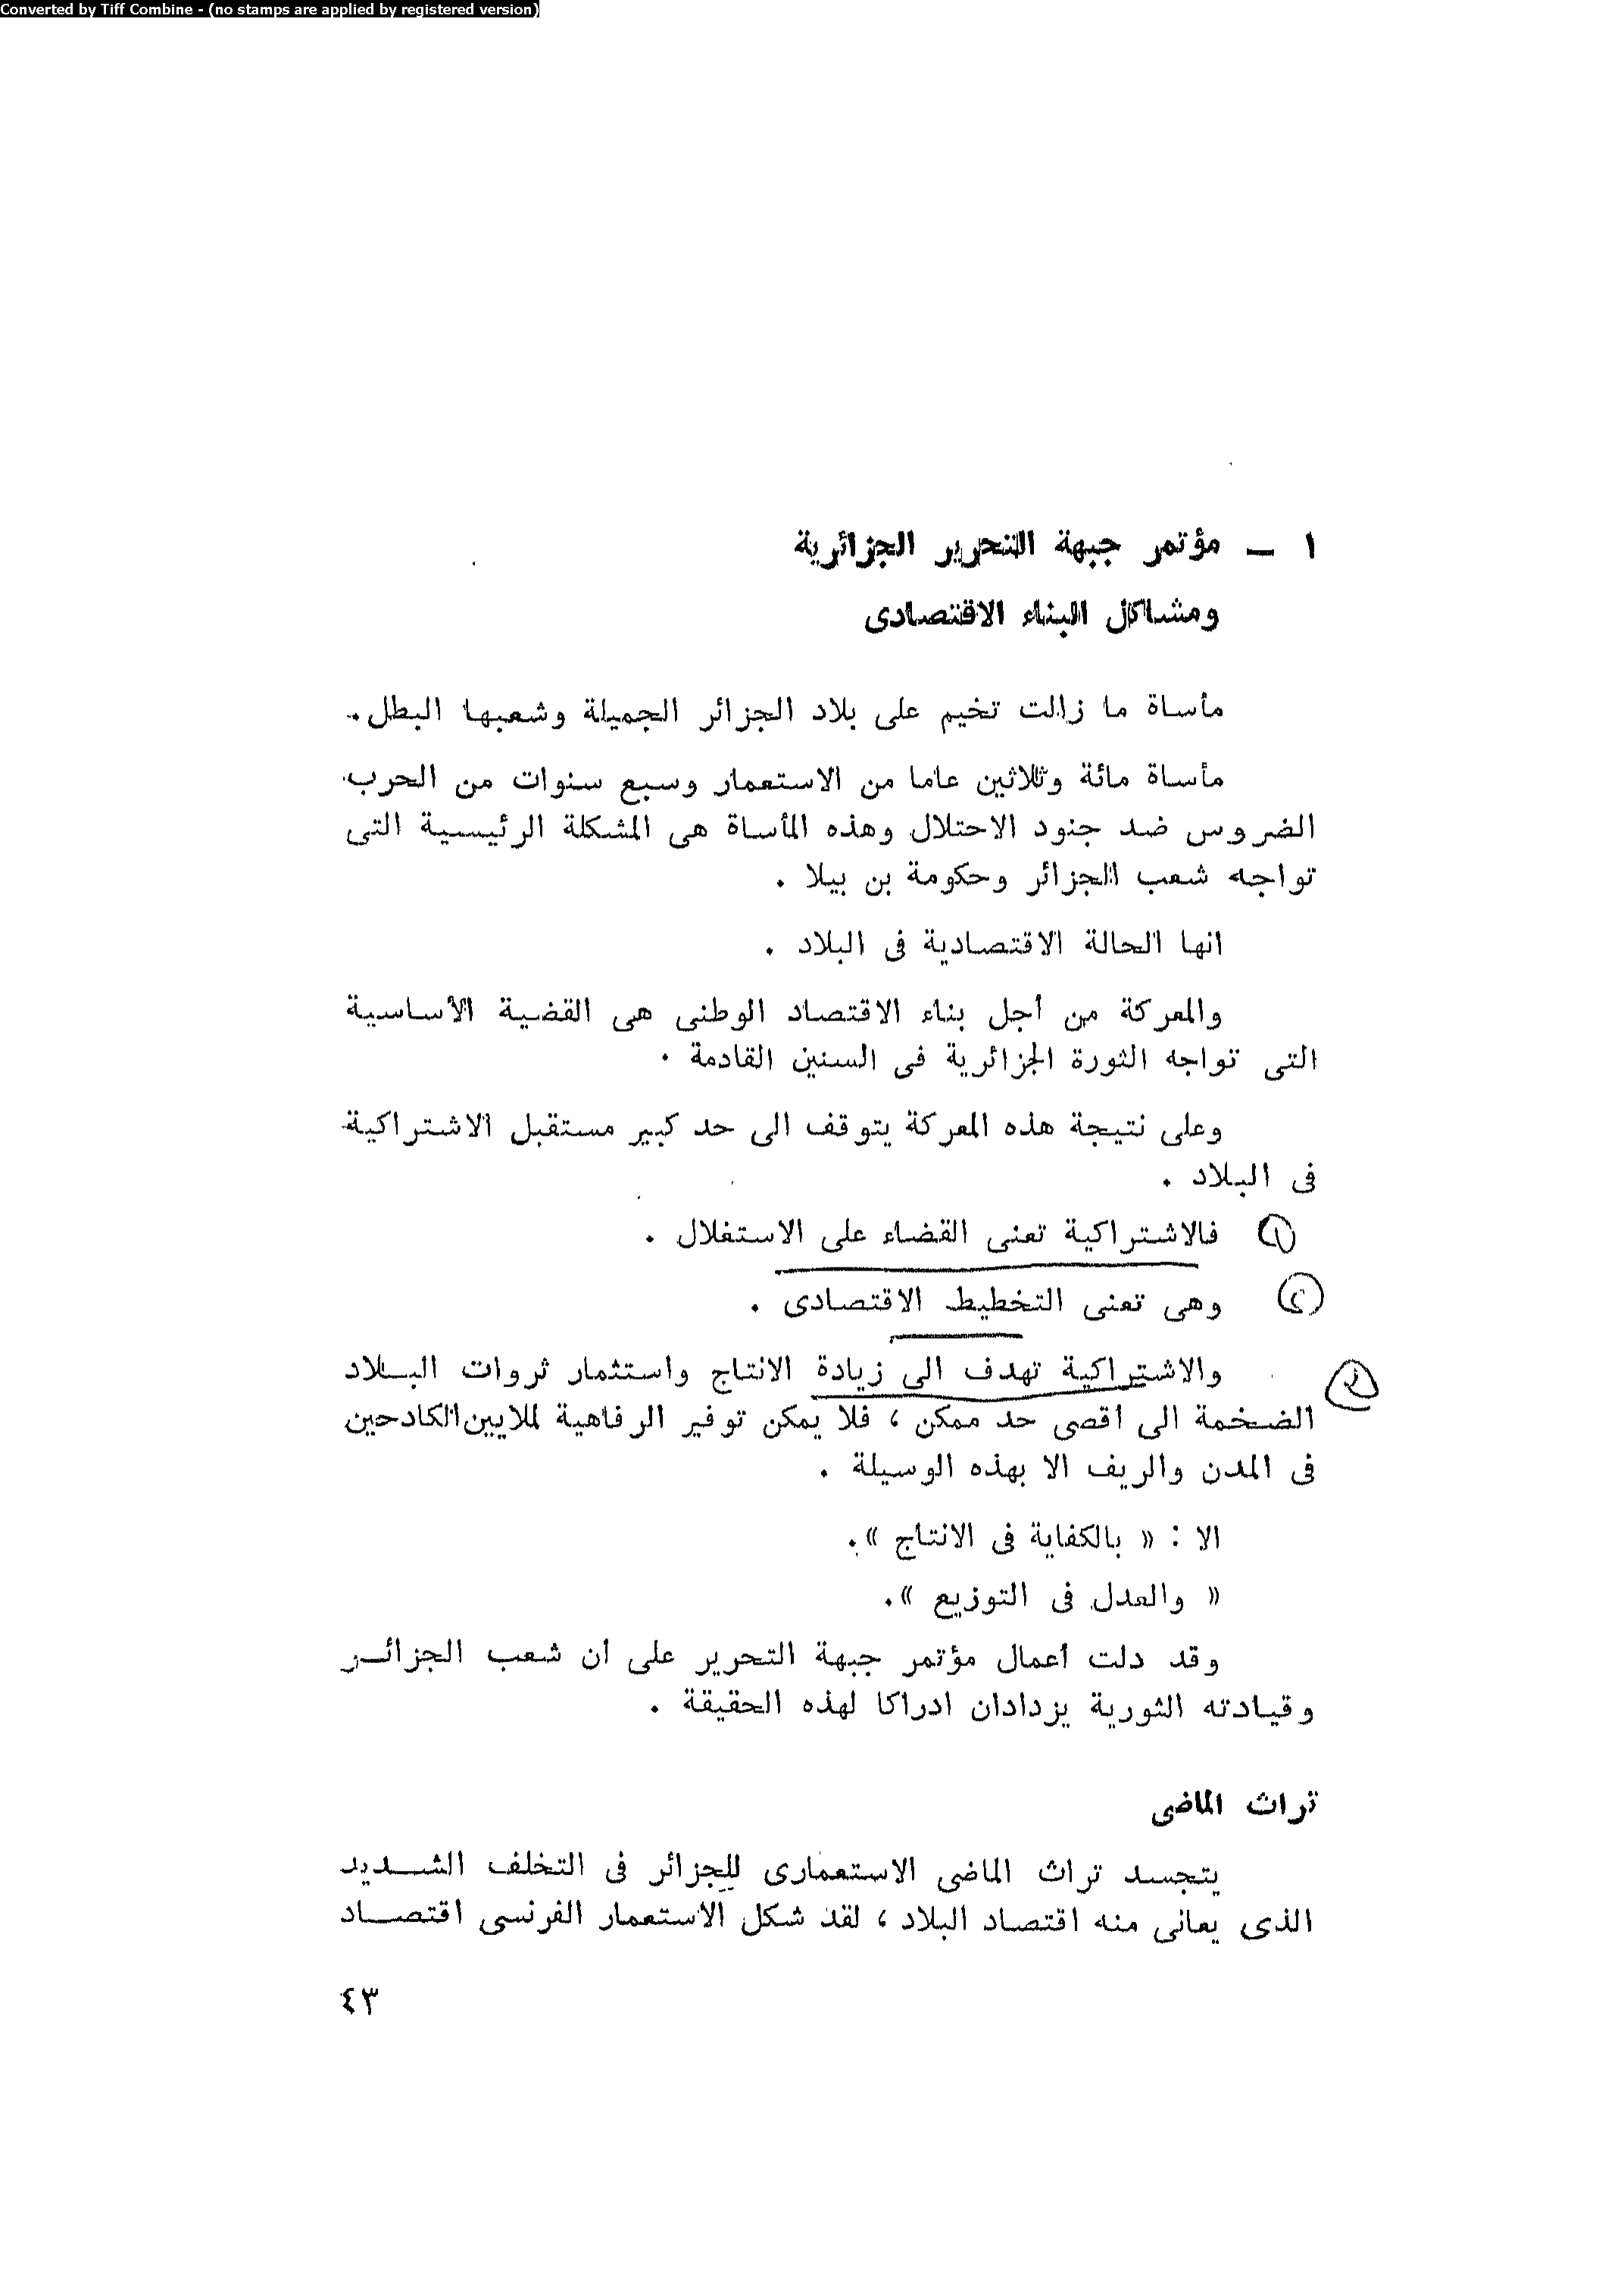 Converted by Tiff Combine - (no stamps are applied by registered version)
١ — مؤتمر جبهة التحرير الجزائرية
ومشاكل البناء الاقتصادى
مأساة ما زالت تخيم على بلاد الجزائر الجميلة وشعبها البطل .
مأساة مائة وثلاثين عاما من الاستعمار وسبع سنوات من الحرب
الضروس ضد جنود الاحتلال وهذه المأساة هى المشكلة الرئيسية التى
تواجه شعب الجزائر وحكومة بن بيلا .
انها الحالة الاقتصادية فى البلاد .
والمعركة من أجل بناء الاقتصاد الوطنى هى القضية الأساسية
التى تواجه الثورة الجزائرية فى السنين القادمة .
وعلى نتيجة هذه المعركة يتوقف الى حد كبير مستقبل الاشتراكية
فى البلاد .
١ فالاشتراكية تعنى القضاء على الاستغلال .
٢ وهى تعنى التخطيط الاقتصادى .
والاشتراكية تهدف الى زيادة الانتاج واستثمار ثروات البلاد
الضخمة الى أقصى حد ممكن ، فلا يمكن توفير الرفاهية لملايين الكادحين
فى المدن والريف الا بهذه الوسيلة .
الا : « بالكفاية فى الانتاج » .
« والعدل فى التوزيع » .
وقد دلت أعمال مؤتمر جبهة التحرير على أن شعب الجزائر
وقيادته الثورية يزدادان ادراكا لهذه الحقيقة .
تراث الماضى
يتجسد تراث الماضى الاستعمارى للجزائر فى التخلف الشديد
الذى يعانى منه اقتصاد البلاد ، لقد شكل الاستعمار الفرنسى اقتصاد
٤٣